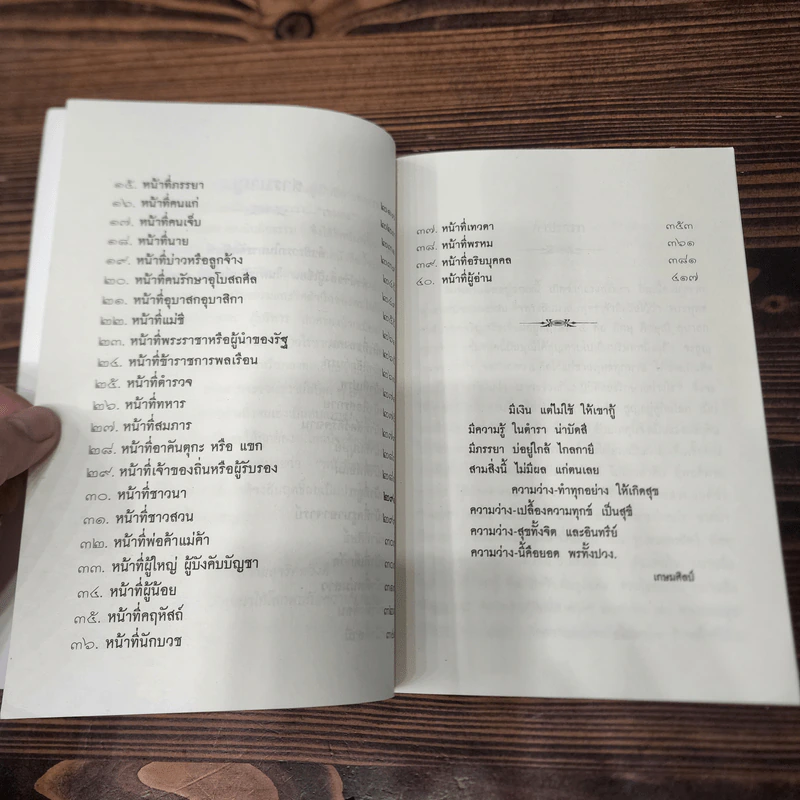 ๑๕. หน้าที่ภรรยา
๑๖. หน้าที่คนแก่
๑๗. หน้าที่คนเจ็บ
๑๘. หน้าที่นาย
๑๙. หน้าที่บ่าวหรือลูกจ้าง
๒๐. หน้าที่คนรักษาอุโบสถศีล
๒๑. หน้าที่อุบาสกอุบาสิกา
๒๒. หน้าที่แม่ชี
๒๓. หน้าที่พระราชาหรือผู้นำของรัฐ
๒๔. หน้าที่ข้าราชการพลเรือน
๒๕. หน้าที่ตำรวจ
๒๖. หน้าที่ทหาร
๒๗. หน้าที่สมภาร
๒๘. หน้าที่อาคันตุกะ หรือ แขก
๒๙. หน้าที่เจ้าของถิ่นหรือผู้รับรอง
๓๐. หน้าที่ชาวนา
๓๑. หน้าที่ชาวสวน
๓๒. หน้าที่พ่อค้าแม่ค้า
๓๓. หน้าที่ผู้ใหญ่ ผู้บังคับบัญชา
๓๔. หน้าที่ผู้น้อย
๓๕. หน้าที่คฤหัสถ์
๓๖. หน้าที่นักบวช
๓๗. หน้าที่เทวดา ๓๕๓
๓๘. หน้าที่พรหม ๓๖๑
๓๙. หน้าที่อริยบุคคล ๓๘๑
๔๐. หน้าที่ผู้อ่าน ๔๑๗
มีเงิน แต่ไม่ใช้ ให้เขากู้
มีความรู้ ในตำรา น่าบัดสี
มีภรรยา บ่อยู่ใกล้ ไกลกายี
สามสิ่งนี้ ไม่มีผล แก่ตนเลย
ความว่าง-ทำทุกอย่าง ให้เกิดสุข
ความว่าง-เปลื้องความทุกข์ เป็นสุขี
ความว่าง-สุขทั้งจิต และอินทรีย์
ความว่าง-นี้คือยอด พรทั้งปวง.
เกษมศิลป์